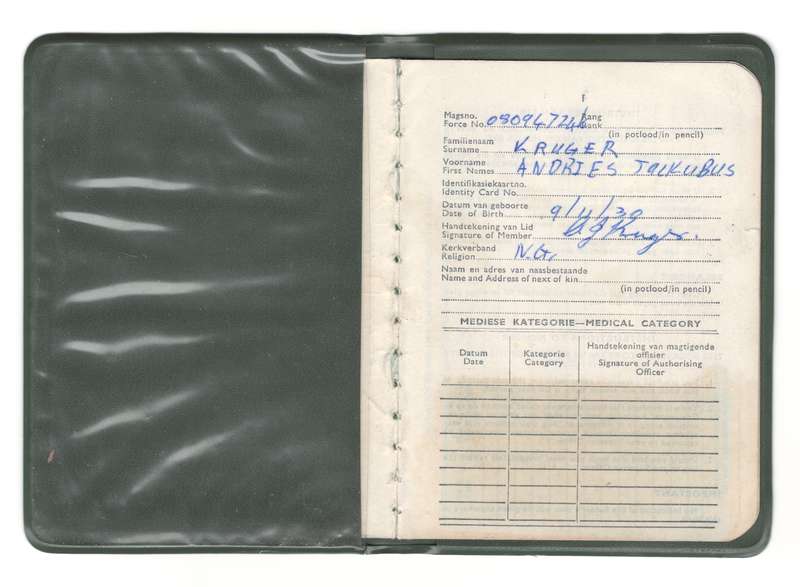 1
Magsno. Rang
Force No. 08094724 Rank
(in potlood/in pencil)
Familienaam
Surname KRUGER
Voorname
First Names ANDRIES
Identifikasiekaartno.
Identity Card No.
Datum van geboorte
Date of Birth 9/4/30
Handtekening van Lid
Signature of Member A J Kruger.
Kerkverband
Religion N.G.
Naam en adres van naasbestaande
Name and Address of next of kin
(in potlood/in pencil)
MEDIESE KATEGORIE—MEDICAL CATEGORY
Datum
Date
Kategorie
Category
Handtekening van magtigende
offisier
Signature of Authorising
Officer